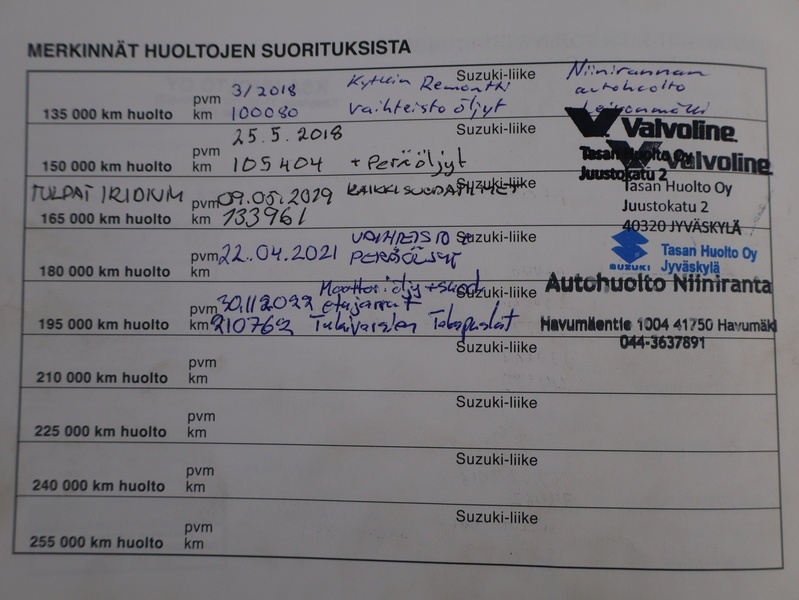 MERKINNÄT HUOLTOJEN SUORITUKSISTA
Suzuki-liike
pvm 3/2018 Kytkin Remontti Niinirannan
135 000 km huolto km 100080 vaihteisto öljyt autohuolto
Suzuki-liike
pvm 25.5.2018 Valvoline
150 000 km huolto km 105404 + Peräöljyt Tasan Huolto Oy
Juustokatu 2
Valvoline
Suzuki-liike
TULPAT IRIDIUM pvm 09.05.2019 KAIKKI SUODATTIMET Tasan Huolto Oy
165 000 km huolto km 133961 Juustokatu 2
40320 JYVÄSKYLÄ
Suzuki-liike
pvm 22.04.2021 VAIHTEISTO
180 000 km huolto km PERÄÖLJYT
SUZUKI Tasan Huolto Oy
Jyväskylä
Suzuki-liike
Moottoriöljy + suod
pvm 30.11.2022 etujarrut Autohuolto Niiniranta
195 000 km huolto km 210762 Tukivarsien Takapuslat Havumäentie 1004 41750 Havumäki
044-3637891
Suzuki-liike
pvm
210 000 km huolto km
Suzuki-liike
pvm
225 000 km huolto km
Suzuki-liike
pvm
240 000 km huolto km
Suzuki-liike
pvm
255 000 km huolto km